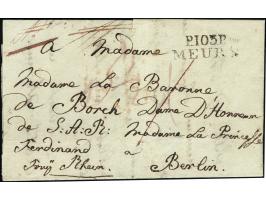 P103P
MEURS
A Madame
Madame La Baronne
de Borch Dame D'Honneur
de S: A: R: Madame La Princesse
Ferdinand a
Berlin.
Rhein